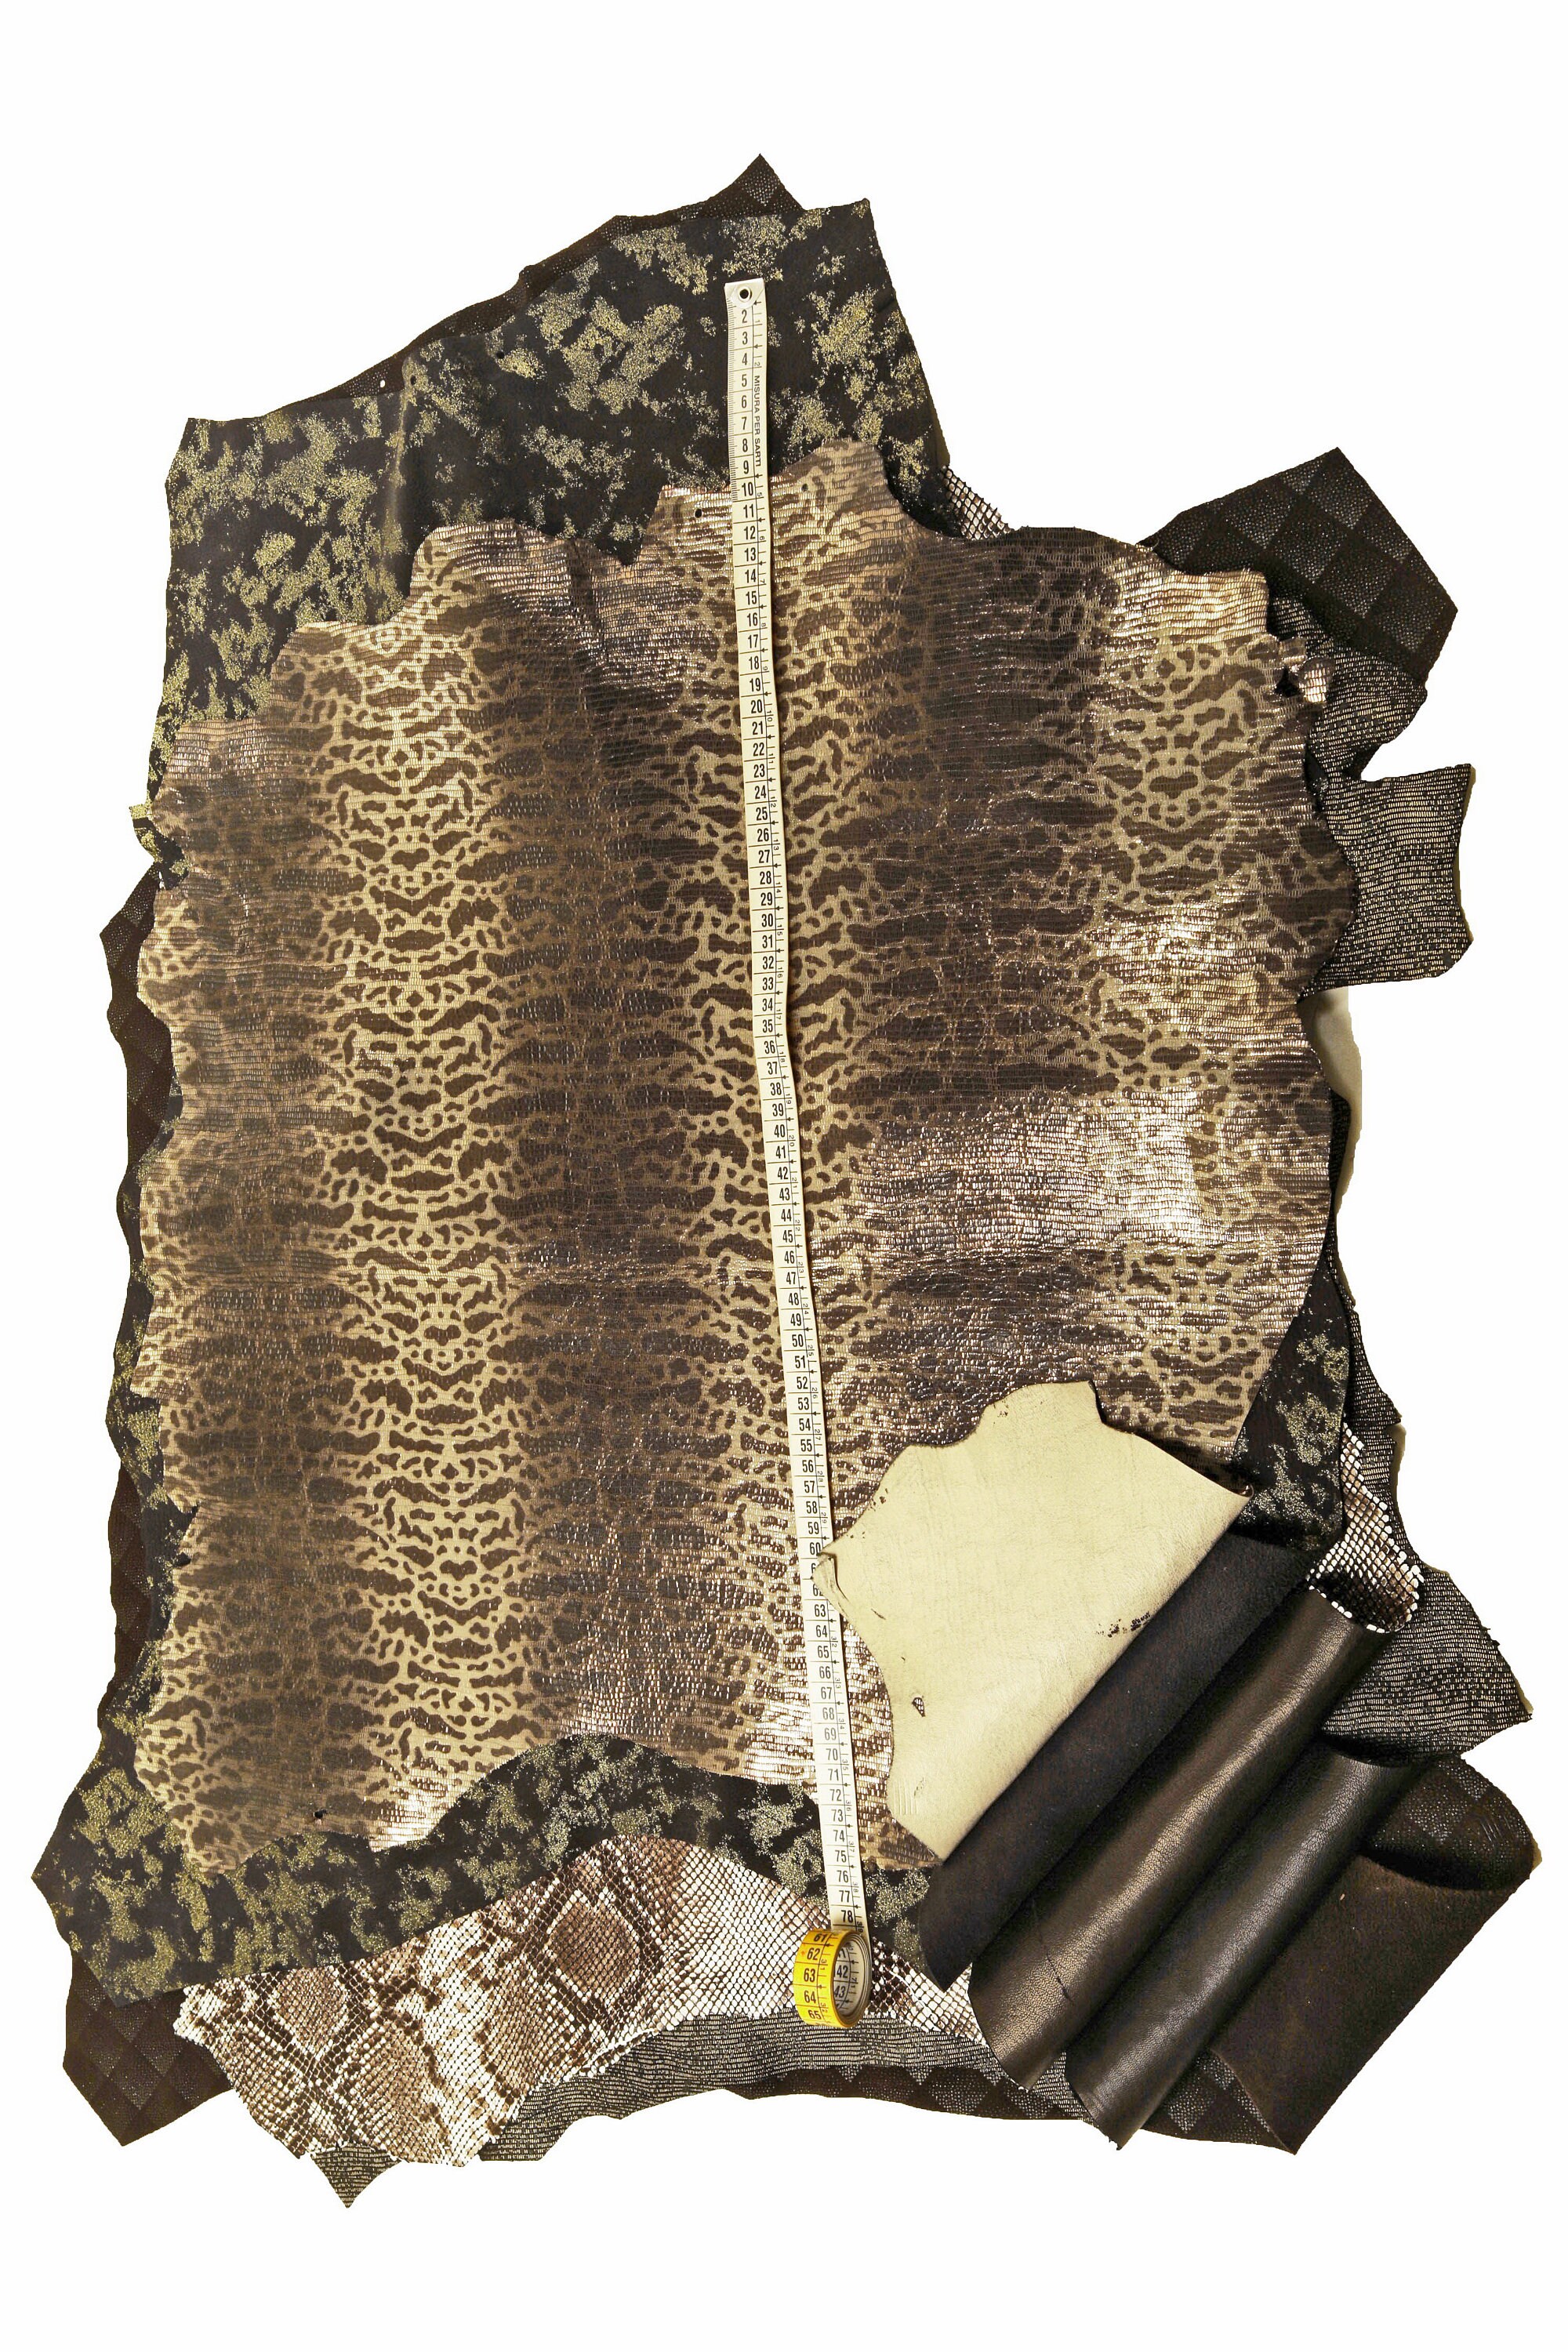 2
3
4
5
6
7
8
9
10
11
12
13
14
15
16
17
18
19
20
21
22
23
24
25
26
27
28
29
30
31
32
33
34
35
36
37
38
39
40
41
42
43
44
45
46
47
48
49
50
51
52
53
54
55
56
57
58
59
60
63
64
65
66
67
68
69
70
71
72
73
74
75
76
77
78
MISURA PER SARTI
61
62
63
64
65
42
43